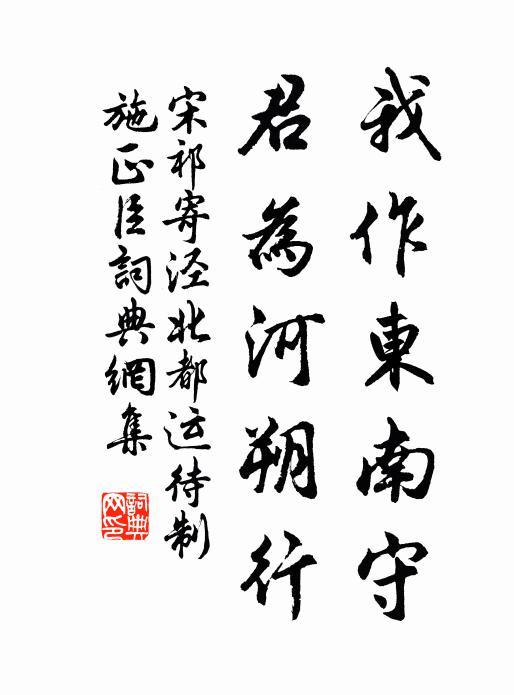 我作東南守
君為河朔行
宋祁寄泾北都运待制
施正臣詞典網集
詞典网印